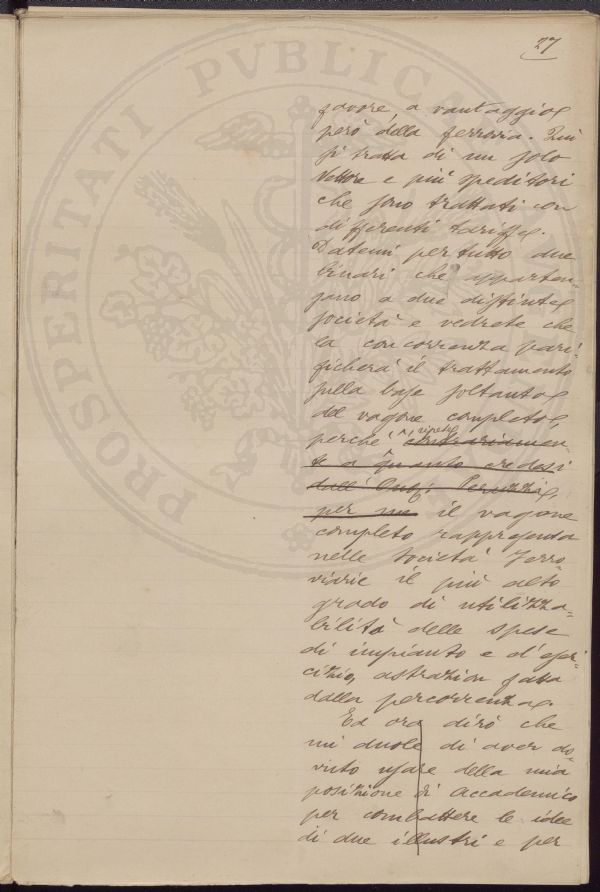 27
PROSPERITATI PVBLICAE
favore, a vantaggio
però della ferrovia. Qui
si tratta di un solo
Vettore e più speditori
che sono trattati con
differenti tariffe.
Datemi per tutto due
binari che apparten-
gano a due distinte
società e vedrete che
la concorrenza pari-
ficherà il trattamento
sulla base soltanto
del vagone completo,
perchè, ripeto, contrariamen-
te a quanto credesi
dall'On. Peruzzi,
per me il vagone
completo rappresenta
nelle Società Ferro-
viarie il più alto
grado di utilizza-
bilità delle spese
di impianto e d'eser-
cizio, astrazion fatta
dalla percorrenza.
Ed ora dirò che
mi duole di aver do-
vuto usare della mia
posizione di Accademico
per combattere le idee
di due illustri e per